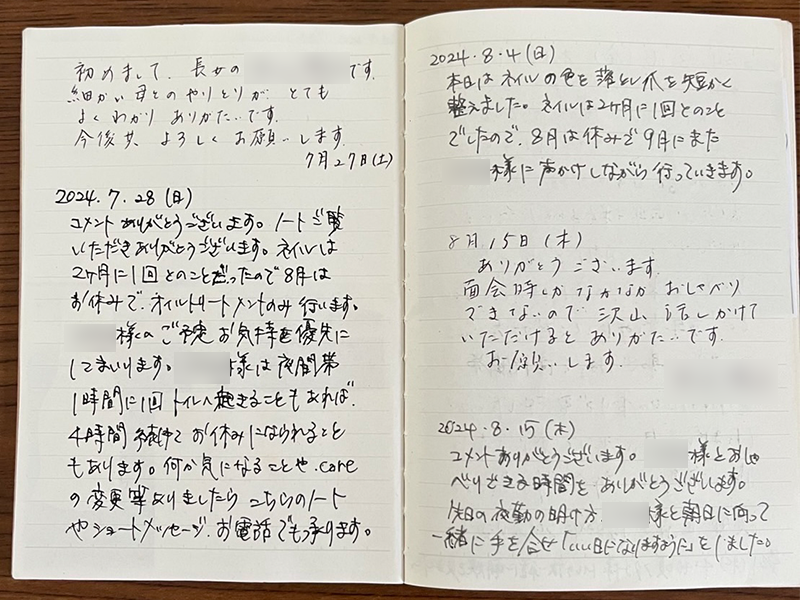 初めまして、長女の です。
細かい母とのやりとりが とても
よくわかり ありがたいです。
今後共 よろしく お願いします。
7月27日(土)
2024.7.28(日)
コメントありがとうございます。ノートご覧
いただきありがとうございます。ネイルは
2ヶ月に1回とのことだったので8月は
お休みで、オイルトリートメントのみ行います。
様のご予定 お気持を優先に
してまいります。 様は夜間帯
1時間に1回トイレへ起きることもあれば、
4時間続けて お休みになられること
もあります。何か気になることや、care
の変更等ありましたら こちらのノート
やショートメッセージ、お電話でも承ります。
2024.8.4(日)
本日は ネイルの色を落とし爪を短かく
整えました。ネイルは2ヶ月に1回とのこと
でしたので、8月は休みで9月にまた
様に声かけしながら行っていきます。
8月15日(木)
ありがとうございます。
面会時しか なかなか おしゃべり
できないので 沢山 話しかけて
いただけると ありがたいです。
お願いします。
2024.8.15(木)
コメントありがとうございます。 様とおしゃ
べりできる時間を ありがとうございます。
先日の夜勤の明け方、 様と朝日に向って
一緒に手を合せ「いい日になりますように」をしました。